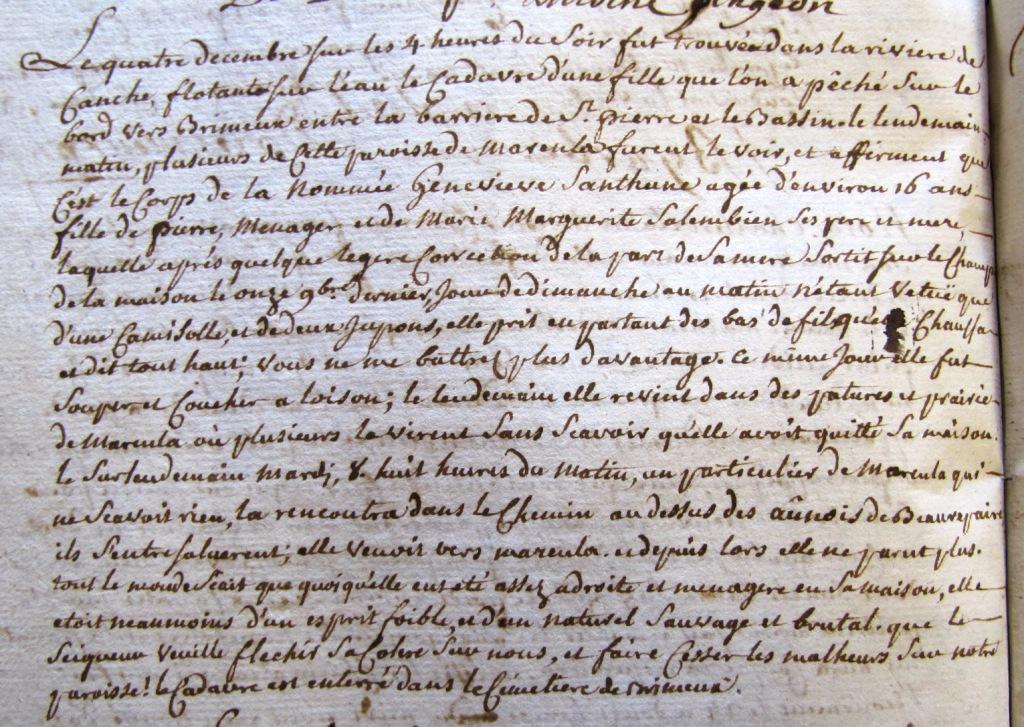 Antoine pingeon
Le quatre decembre sur les 4 heures du Soir fut trouvée dans la riviere de
Canche, flotante sur l'eau le Cadavre d'une fille que l'on a pêché sur le
bord vers Brimeux entre la barriere de St. pierre et le Bassin. le lendemain
matin, plusieurs de Cette paroisse de Marenla furent le voir, et affirment que
C'est le Corps de la Nommée Genevieve Santhune agée d'environ 16 ans
fille de pierre, Menager et de Marie Marguerite Salembien Ses pere et mere,
laquelle aprés quelque legere Correction de la part de Sa mere Sortit sur le Champ
de la maison le onze 9bre dernier, Jour de dimanche au matin n'étant Vetuë que
d'une Camisolle, et de deux Jupons, elle prit en partant des bas de fil Chaussa
et dit tout haut; Vous ne me battrez plus davantage. Ce même Jour elle fut
Souper et Coucher a loison; le lendemain elle revint dans des patures et prairie
de Marenla où plusieurs la virent Sans Scavoir qu'elle avoit quitté Sa maison.
le Surlendemain Mardi, 8. huit heures du Matin, un particulier de Marenla qui
ne Scavoit rien, la rencontra dans le Chemin au dessus des aûnois de Beaurepaire
ils S'entresaluerent; elle Venoit vers marenla. et depuis lors elle ne parut plus.
tout le monde Scait que quoiqu'elle eut été assez adroite et menagere en Sa maison, elle
etoit neaumoins d'un esprit foible, et d'un naturel Sauvage et brutal. que le
Seigneur Veuille flechir Sa Colere Sur nous, et faire Cesser les malheurs Sur notre
paroisse! le Cadavre est enterré dans le Cimetiere de Brimeux.